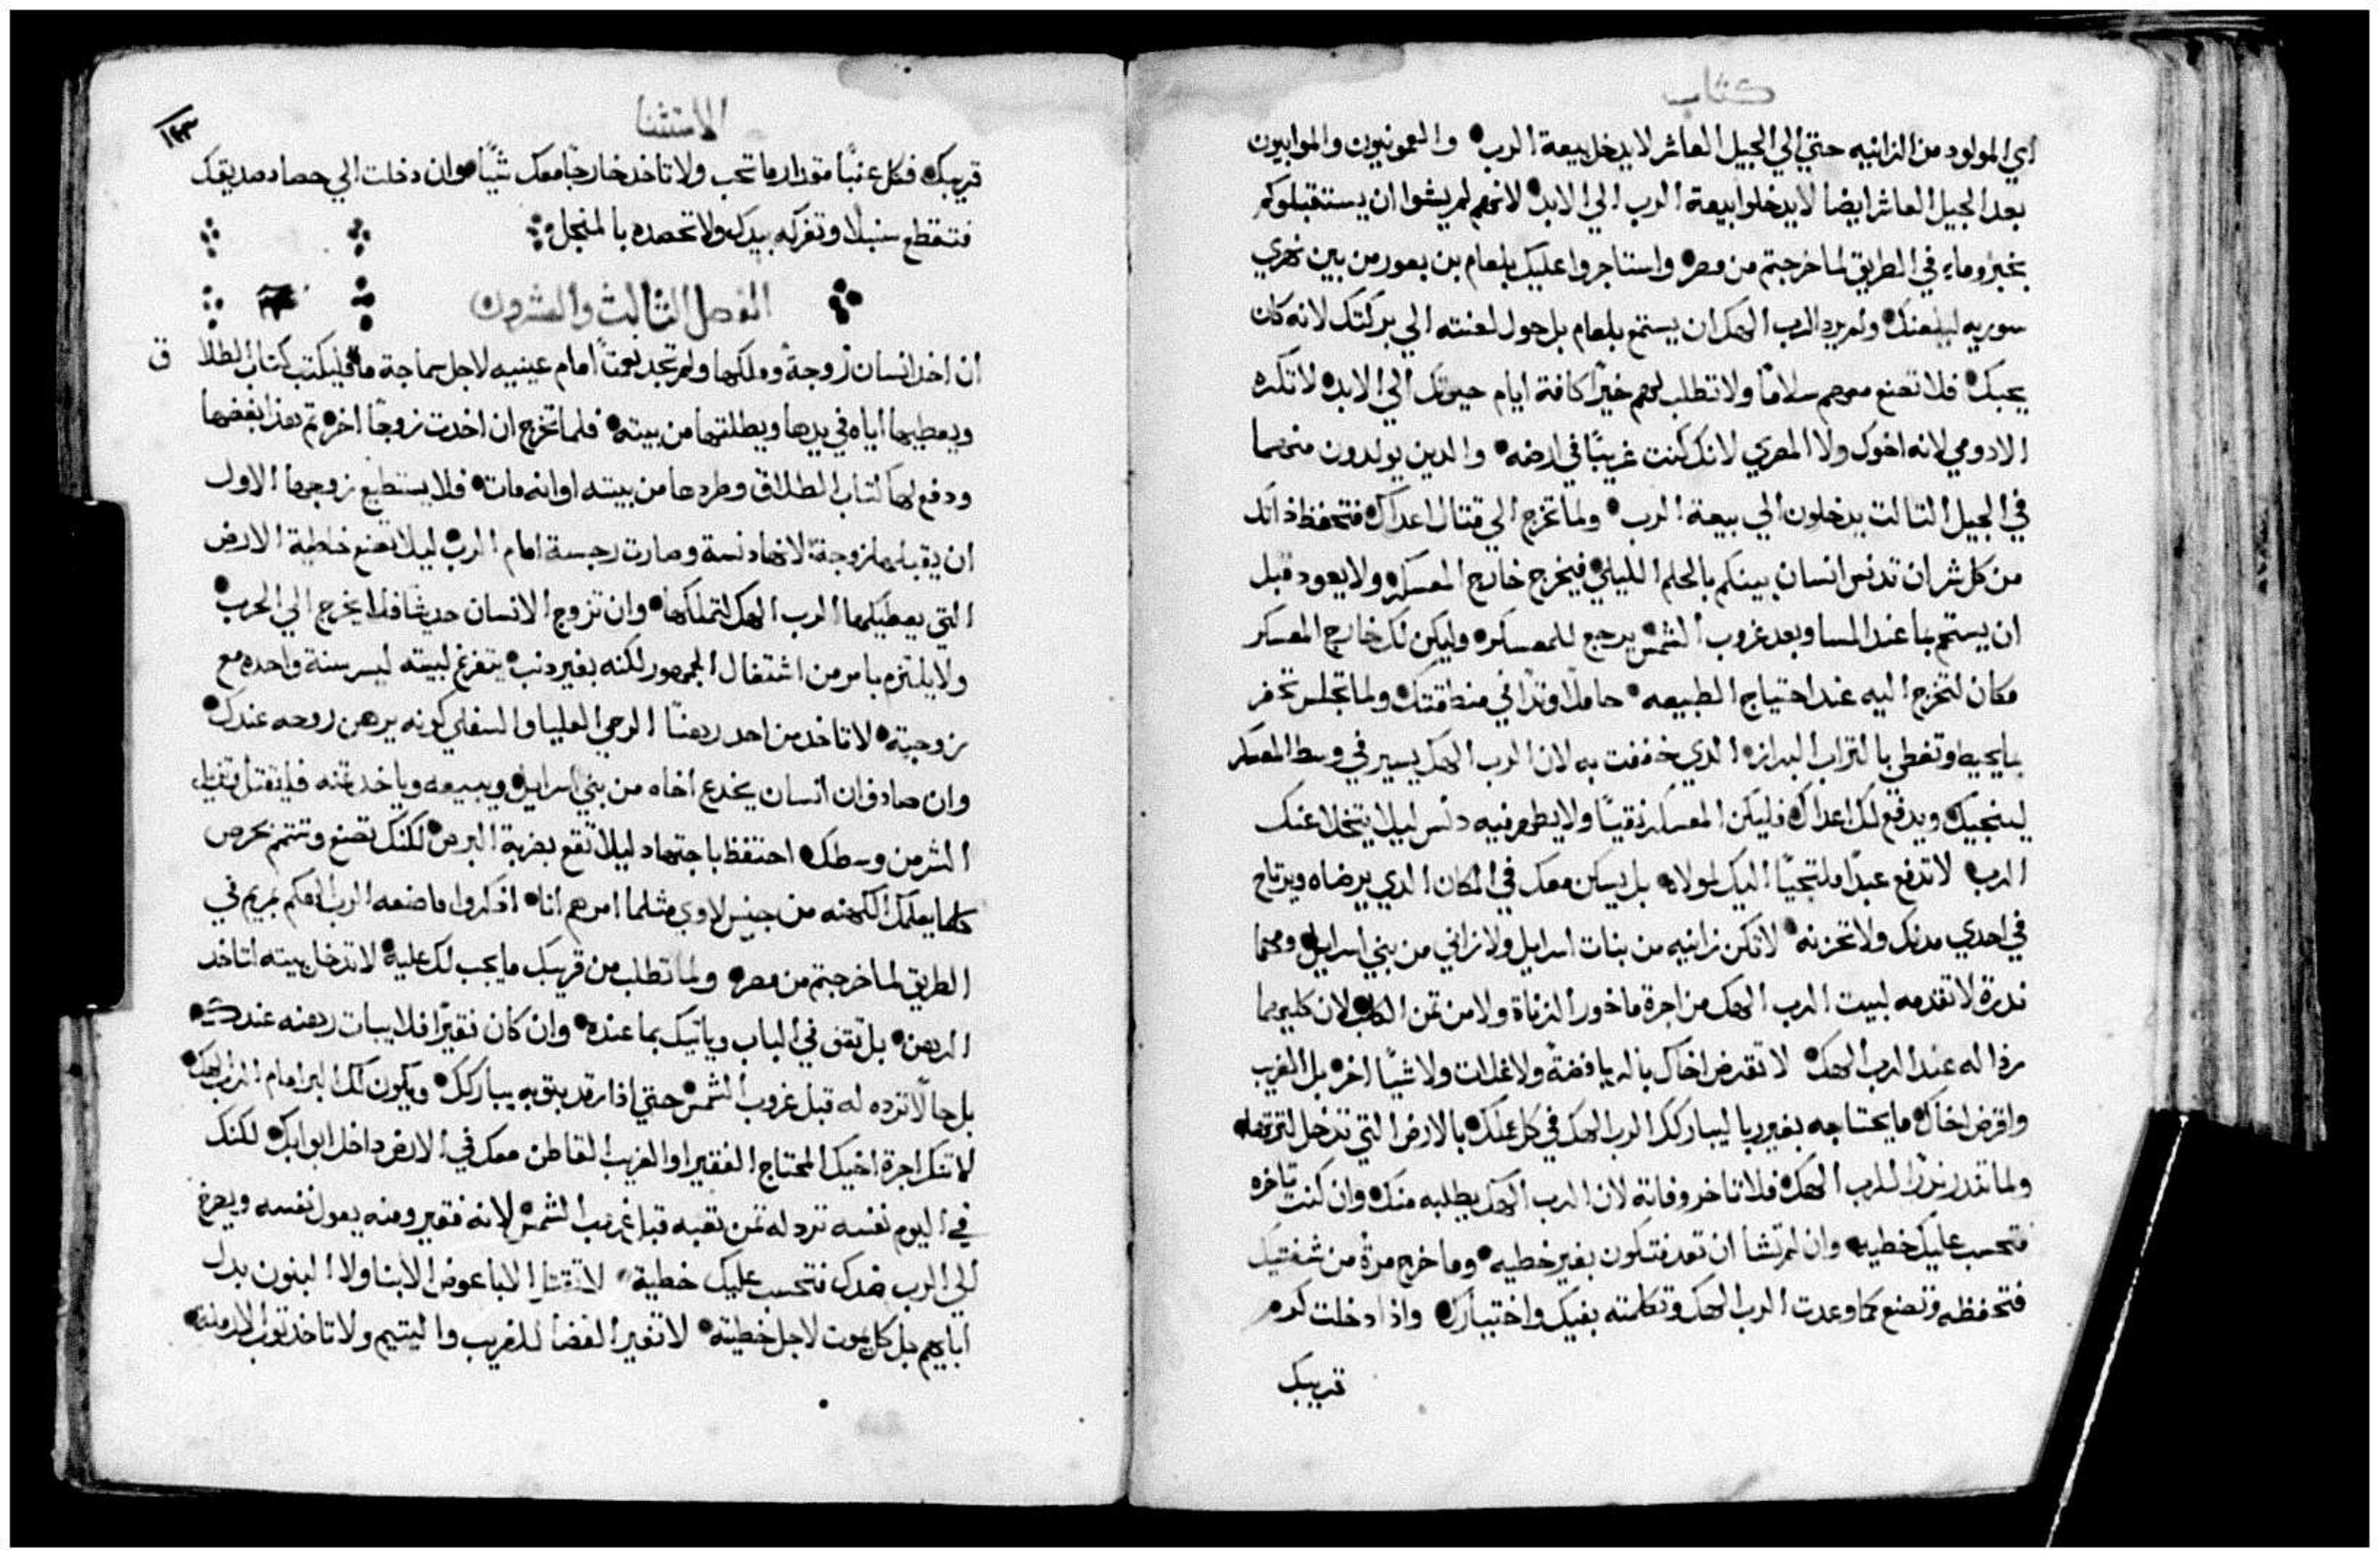 كتاب
اي المولود من الزانيه حتي الي الجيل العاشر لا يدخل بيعة الرب والعمونيون والموابيون
بعد الجيل العاشر ايضا لا يدخلوا بيعة الرب الي الابد لانهم لم يشوا ان يستقبلوكم
بخبز وماء في الطريق لما خرجتم من مصر واستاجروا عليك بلعام بن بعور من بين نهري
سوريه ليلعنك ولم يرد الرب الهك ان يستمع بلعام بل حول لعنته الي بركتك لانه كان
يحبك فلا تصنع معهم سلامًا ولا تطلب لهم خيرًا كافة ايام حيوتك الي الابد لا تكره
الادومي لانه اخوك ولا المصري لانك كنت غريبًا في ارضه والدين يولدون منهما
في الجيل التالت يدخلون الي بيعة الرب ولما تخرج الي قتال اعداك فتحفظ ذاتك
من كل شر ان تدنس انسان بينكم بالحلم الليلي فيخرج خارج المعسكر ولا يعود قبل
ان يستحم بما عند المسا وبعد غروب الشمس يرجع للمعسكر وليكن لك خارج المعسكر
مكان لتخرج اليه عند احتياج الطبيعه حاملًا وتدًا في منطقتك ولما تجلس تحفر
بما يحيط وتغطي بالتراب البراز الدي خففت به لان الرب الهك يسير في وسط المعسكر
لينجيك ويدفع لك اعداك فليكن المعسكر نقيًا ولا يظهر فيه دنس ليلا يتخلا عنك
الرب لا تدفع عبدًا ملتجيًا اليك لمولاه بل يسكن معك في المكان الدي يرضاه ويرتاح
في احدي مدنك ولا تحزنه لا تكن زانيه من بنات اسرايل ولا زاني من بني اسرايل ومهما
ندرة لا تقدمه لبيت الرب الهك من اجرة ماخور الزناة ولا من تمن الكلب لان كليهما
رذاله عند الرب الهك لا تقرض اخاك بالربا فضةً ولا غلات ولا شيًا اخر بل الغريب
واقرض اخاك ما يحتاجه بغير ربا ليباركك الرب الهك في كل عملك بالارض التي تدخل لترتها
ولما تندر ندرًا للرب الهك فلا تاخر وفاته لان الرب الهك يطلبه منك وان كنت تاخره
فتحسب عليك خطيه وان لم تشا ان تعد فتكون بغير خطيه وما خرج مرة من شفتيك
فتحفظه وتصنع كما وعدت الرب الهك وتكلمته بفيك واختيارك واذا دخلت كرم
قريبك
الاستثنا
١٢٣
قريبك فكل عنبًا مقدار ما تحب ولا تاخد خارجًا معك شيًا وان دخلت الي حصاد صديقك
فتقطع سنبلا وتفركه بيدك ولا تحصده بالمنجل
الفصل الثالث والعشرون
ان اخد انسان زوجة وملكها ولم تجد نعمتًا امام عينيه لاجل سماجة ما فليكتب كتاب الطلا ق
ويعطيها اياه في يدها ويطلقها من بيته فلما تخرج ان اخدت زوجًا اخر تم هذا بغضها
ودفع لها كتاب الطلاق وطردها من بيته او انه مات فلا يستطيع زوجها الاول
ان يقبلها زوجة لانها دنسة وصارت رجسة امام الرب ليلا تصنع خاطية الارض
التي يعطيكها الرب الهك لتملكها وان تزوج الانسان حديثًا فلا يخرج الي الحرب
ولا يلتزم بامر من اشتغال الجمهور لكنه بغير دنب يتفرغ لبيته ليسر سنة واحده مع
زوجته لا تاخد من احد رهنًا الرحي العليا والسفلي كونه يرهن روحه عندك
وان صادف ان انسان يخدع اخاه من بني اسرايل ويبيعه وياخد تمنه فليقتل وتزيل
الشر من وسطك احتفظ باجتهاد ليلا تقع بضربة البرص لكنك تصنع وتتم بحرص
كلما يعلمك الكهنه من جنس لاوي مثلما امرهم انا اذكروا ما صنعه الرب الهكم بمريم في
الطريق لما خرجتم من مصر ولما تطلب من قريبك ما يجب لك عليه لا تدخل بيته لتاخد
الرهن بل تقف في الباب وياتيك بما عنده وان كان فقيرًا فلا يبات رهنه عندك
بل حالًا ترده له قبل غروب الشمس حتي اذا رقد بتوبه يباركك ويكون لك البر امام الرب الهك
لا تنكر اجرة اخيك المحتاج الفقير او الغريب القاطن معك في الارض داخل ابوابك لكنك
في اليوم نفسه ترد له تمن تعبه قبل غروب الشمس لانه فقير ومنه يعول نفسه ويصرخ
الي الرب ضدك فتحسب عليك خطية لا تقتل الابا عوض الابنا ولا البنون بدل
ابايهم بل كل يموت لاجل خطيته لا تغير القضا للغريب واليتيم ولا تاخد توب الارملة